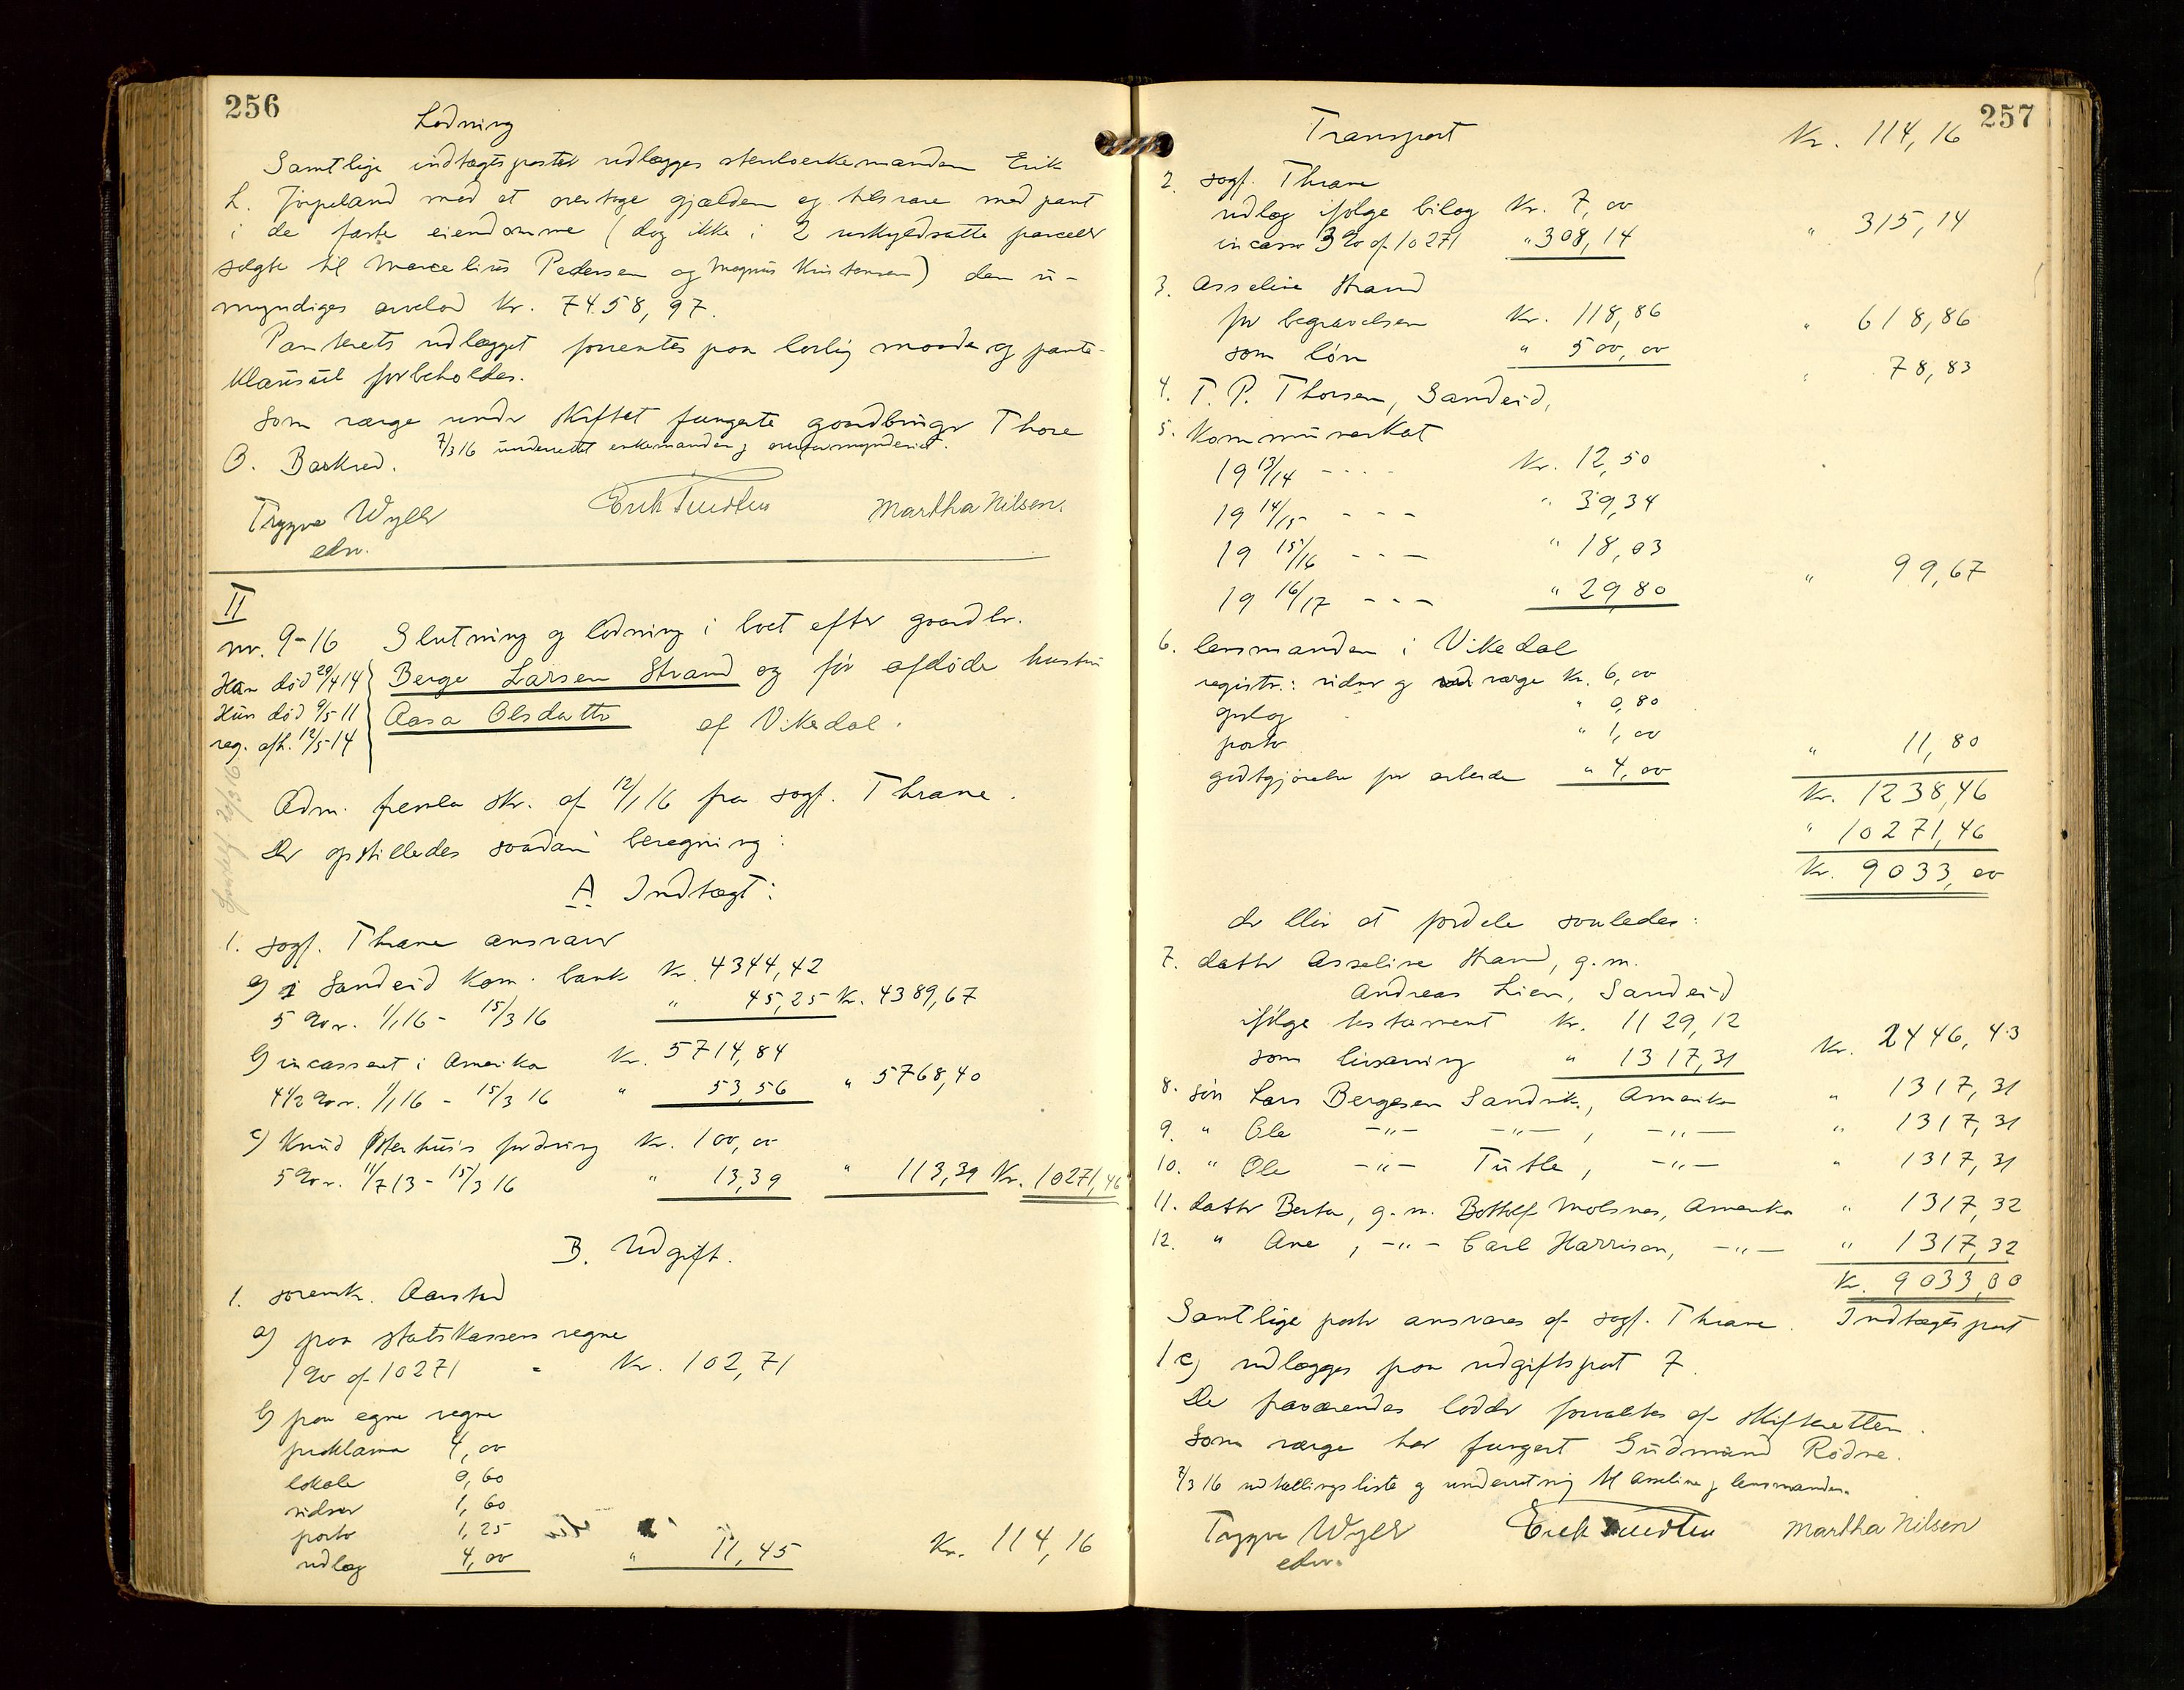 256
Lodning
Samtlige indtægtsposter udlægges stenloenkemanden Erik
L. Jørpeland mod at overtage gjælden og tilsvare med pant
i de faste eiendomme (dog ikke i 2 uskyldsatte parceller
solgte til Marcelius Pedersen og Magnus Kristensen) den u-
myndiges arvelod kr. 7458,97.
Panterets udlægget forrentes paa lovlig maade og pante-
klausul forbeholdes.
Som værge under skiftet fungerte gaardbruger Thore
O. Barkved. 7/3 16 underrettet enkemanden og overformynderiet.
Trygve Wyller Erik Tuedten Martha Nilsen.
edsv.
II
nr. 9-16 Slutning og lodning i boet efter gaardbr.
Han død 29/4 14 Berge Larsen Strand og før afdøde hustru
Hun død 9/5-11 Aasa Olsdatter af Vikedal.
reg. afh. 12/5-14
Adm. fremla skr. af 12/1 16 fra sagf. Thrane.
Der opstilledes saadan beregning:
A Indtægt:
1. sagf. Thrane ansvarer
a) i Sandeid kom. bank Kr. 4344,42
5 % r. 1/1 16 - 15/3 16 " 45,25 Kr. 4389,67
b) incassert i Amerika Kr. 5714,84
4 1/2 % r. 1/1 16 - 15/3 16 " 53,56 " 5768,40
c) Knud Østerhus's fordring Kr. 100,00
5 % r. 11/7 13 - 15/3 16 " 13,39 " 113,39 Kr. 10271,46
B. Udgift.
1. sorensk. Aarstad
a) paa statskassens regne
1 % af 10271 = Kr. 102,71
b) paa egne regne
proklama 4,00
lokale 0,60
vidner 1,60
porto 1,25
udlæg 4,00 " 11,45 Kr. 114,16
257
Transport Kr. 114,16
2. sagf. Thrane
udlæg ifølge bilag Kr. 7,00
incasso 3 % af 10271 " 308,14 " 315,14
3. Asseline Strand
for begravelsen Kr. 118,86
som løn " 500,00 " 618,86
4. T. P. Thorsen, Sandeid, " 78,83
5. Kommuneskat
19 13/14 - - - - Kr. 12,50
19 14/15 - - - " 39,34
19 15/16 - - - " 18,03
19 16/17 - - - " 29,80 " 99,67
6. lensmanden i Vikedal
registr.: vidner og værge Kr. 6,00
" 0,80
porto " 1,00
godtgjørelse for arbeide " 4,00 " 11,80
Kr. 1238,46
" 10271,46
Kr. 9033,00
der blir at fordele saaledes:
7. datter Asseline Strand, g. m.
Andreas Lien, Sandeid
ifølge testament Kr. 1129,12
som livsarving " 1317,31 Kr. 2446,43
8. søn Lars Bergesen Sandvik, Amerika " 1317,31
9. " Ole -"- -"-, -"- " 1317,31
10. " Ole -"- Tutle, -"- " 1317,31
11. datter Berta, g. m. Bottolf Molsnes, Amerika " 1317,32
12. " Ane, -"- Carl Harrison, -"- " 1317,32
Kr. 9033,00
Samtlige poster ansvares af sagf. Thrane. Indtægtspost
1 c) udlægges paa udgiftspost 7.
De fraværendes lodder forvaltes af skifteretten.
Som værge har fungert Gudmund Rødne.
7/3 16 udtællingsliste og underretning til Asseline og lensmanden.
Trygve Wyller Erik Tuedten Martha Nilsen
edsv.